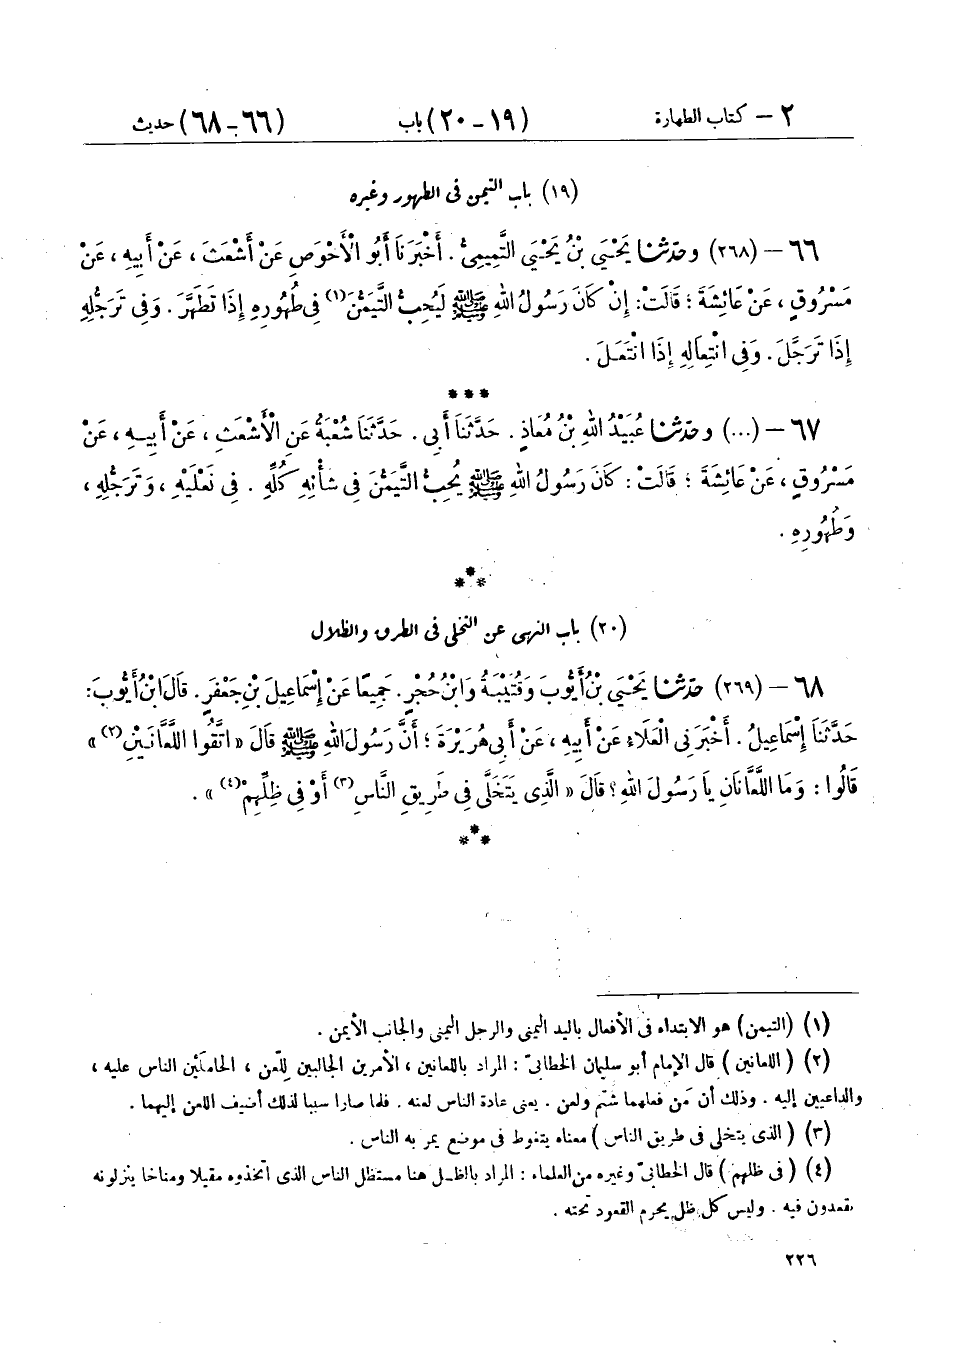 ٢ – كتاب الطهارة (١٩ – ٢٠) باب (٦٦ – ٦٨) حديث
(١٩) باب التيمن فى الطهور وغيره
٦٦ – (٢٦٨) وحدّثنا يَحْيَى بْنُ يَحْيَى التَّمِيمِىُّ . أَخْبَرَنَا أَبُو الْأَحْوَصِ عَنْ أَشْعَثَ ، عَنْ أَبِيهِ ، عَنْ
مَسْرُوقٍ ، عَنْ عَائِشَةَ ؛ قَالَتْ : إِنْ كَانَ رَسُولُ اللهِ ﷺ لَيُحِبُّ التَّيَمُّنَ (١) فِى طُهُورِهِ إِذَا تَطَهَّرَ . وَفِى تَرَجُّلِهِ
إِذَا تَرَجَّلَ . وَفِى انْتِعَالِهِ إِذَا انْتَعَلَ .
***
٦٧ – (...) وحدّثنا عُبَيْدُ اللهِ بْنُ مُعَاذٍ . حَدَّثَنَا أَبِى . حَدَّثَنَا شُعْبَةُ عَنِ الْأَشْعَثِ ، عَنْ أَبِيهِ ، عَنْ
مَسْرُوقٍ ، عَنْ عَائِشَةَ ؛ قَالَتْ : كَانَ رَسُولُ اللهِ ﷺ يُحِبُّ التَّيَمُّنَ فِى شَأْنِهِ كُلِّهِ . فِى نَعْلَيْهِ ، وَتَرَجُّلِهِ ،
وَطُهُورِهِ .
***
(٢٠) باب النهى عن التخلى فى الطرق والظلال
٦٨ – (٢٦٩) حدّثنا يَحْيَى بْنُ أَيُّوبَ وَقُتَيْبَةُ وَابْنُ حُجْرٍ . جَمِيعًا عَنْ إِسْمَاعِيلَ بْنِ جَعْفَرٍ . قَالَ ابْنُ أَيُّوبَ :
حَدَّثَنَا إِسْمَاعِيلُ . أَخْبَرَنِى الْعَلَاءُ عَنْ أَبِيهِ ، عَنْ أَبِى هُرَيْرَةَ ؛ أَنَّ رَسُولَ اللهِ ﷺ قَالَ « اتَّقُوا اللَّعَّانَيْنِ (٢) »
قَالُوا : وَمَا اللَّعَّانَانِ يَا رَسُولَ اللهِ ؟ قَالَ « الَّذِى يَتَخَلَّى فِى طَرِيقِ النَّاسِ (٣) أَوْ فِى ظِلِّهِمْ (٤) » .
***
(١) (التيمن) هو الابتداء فى الأفعال باليد اليمنى والرجل اليمنى والجانب الأيمن .
(٢) ( اللعانين ) قال الإمام أبو سليمان الخطابىّ : المراد باللعانين ، الأمرين الجالبين لِلّعن ، الحاملَيْن الناس عليه ،
والداعيين إليه . وذلك أن مَن فعلهما شُتم ولعن . يعنى عادة الناس لعنه . فلما صارا سببا لذلك أضيف اللعن إليهما .
(٣) ( الذى يتخلى فى طريق الناس ) معناه يتغوط فى موضع يمر به الناس .
(٤) ( فى ظلهم ) قال الخطابىّ وغيره من العلماء : المراد بالظل هنا مستظل الناس الذى اتخذوه مقيلا ومناخا ينزلونه
يقعدون فيه . وليس كل ظل يحرم القعود تحته .
٢٢٦